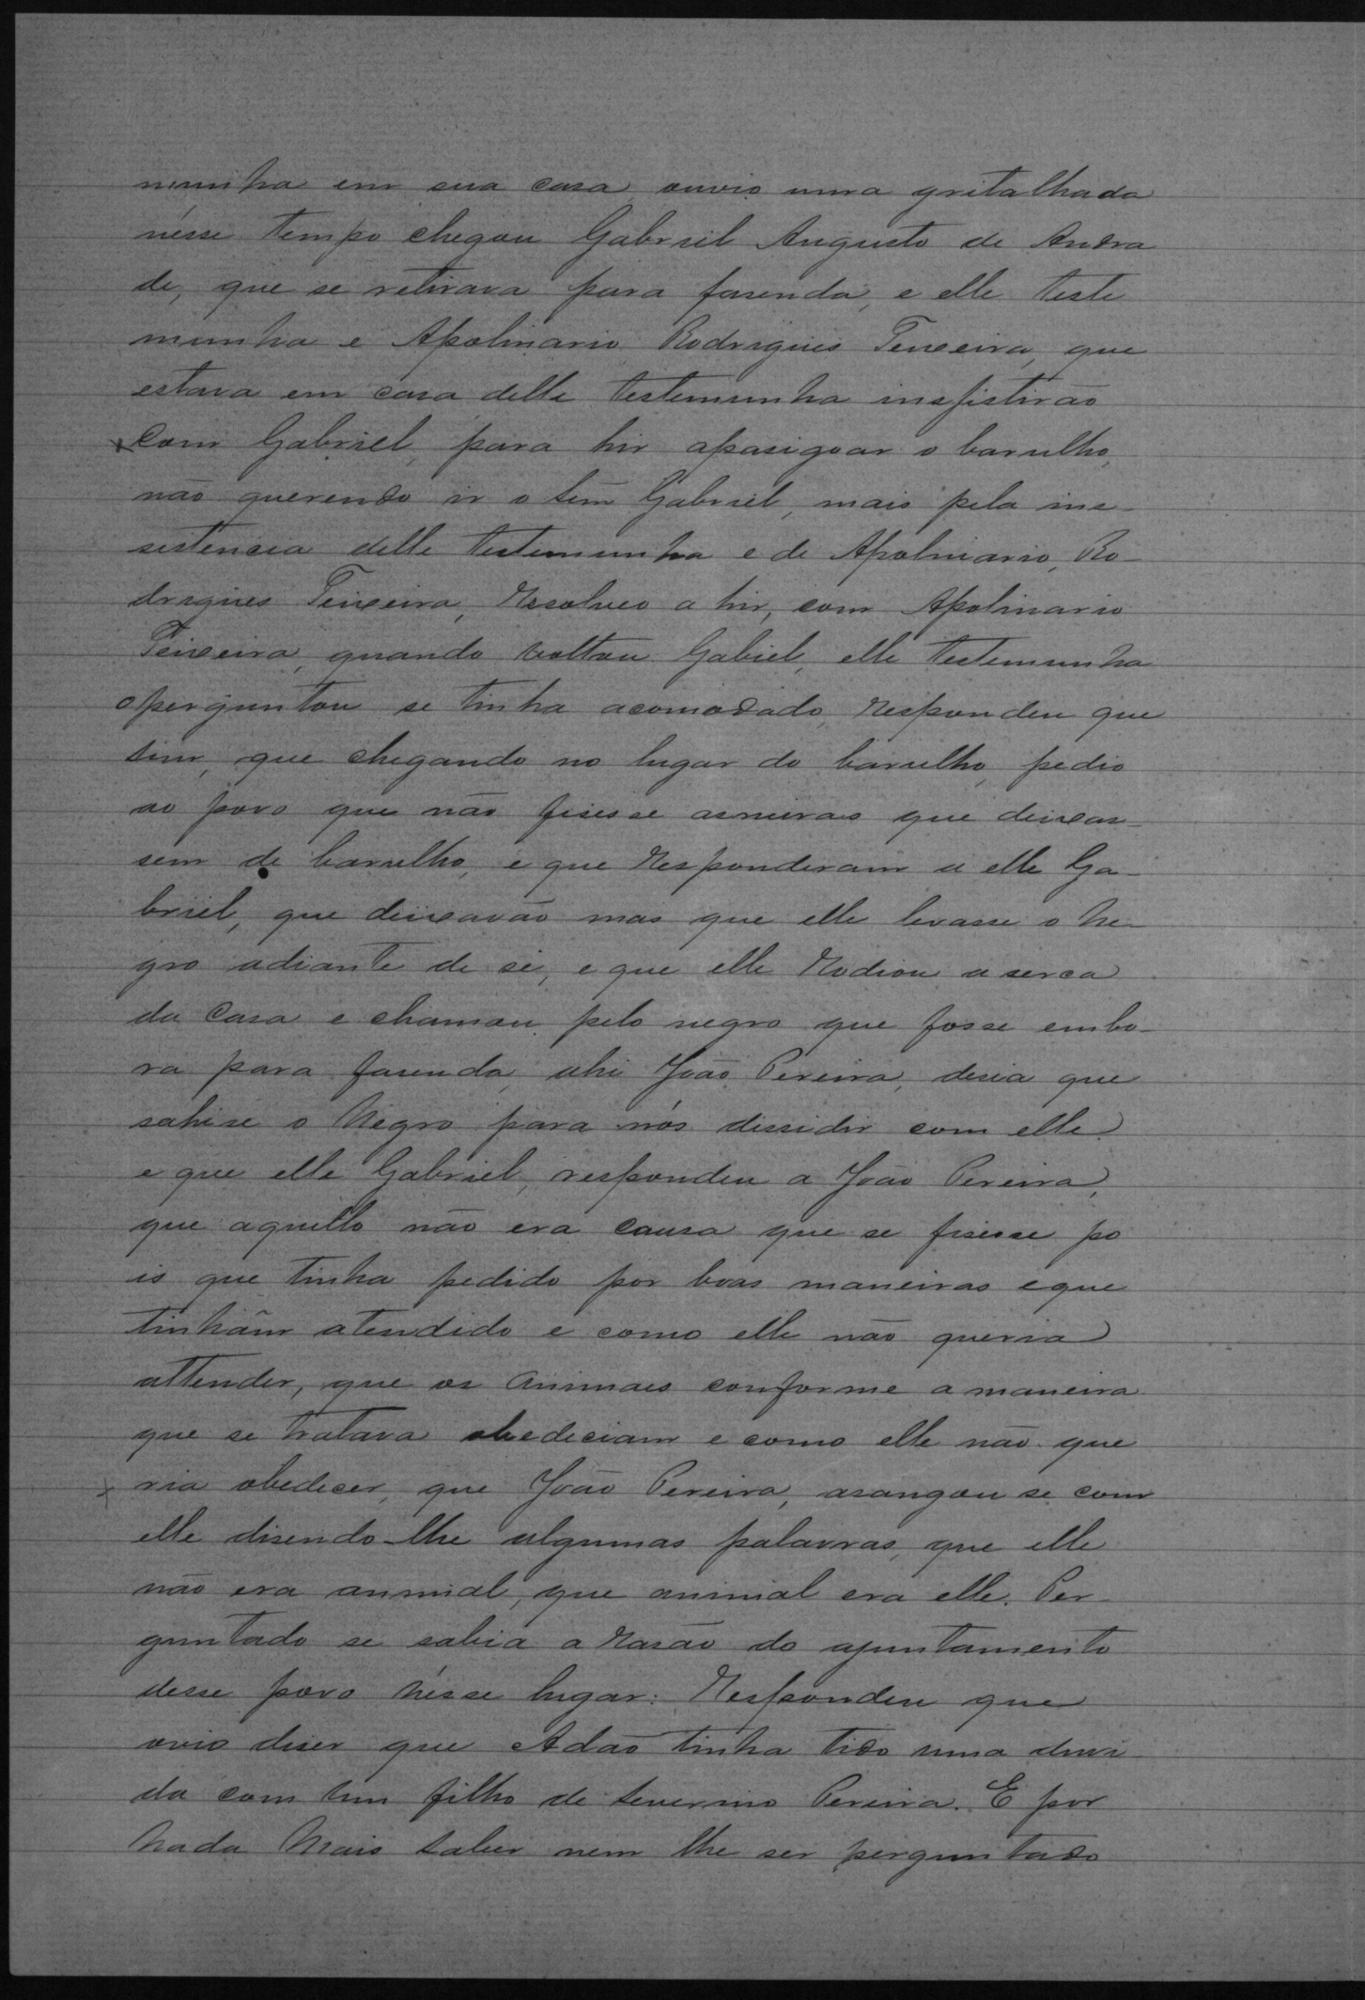 munha em sua casa, ouvio uma gritalhada
nésse tempo chegou Gabriel Augusto de Andra
de, que se retirava para fasenda, e elle teste
munha e Apolinario Rodrigues Teixeira, que
estava em casa delle testemunha insistirão
com Gabriel, para hir apasigoar o barulho,
não querendo ir o Gabriel, mais pela ins-
sistencia delle testemunha e de Apolinario, Ro-
drigues Teixeira, Resolveo a hir, com Apolinario
Teixeira, quando voltou Gabiel, elle testemunha
o perguntou se tinha acomodado, Respondeu que
sim, que chegando no lugar do barulho, pedio
ao povo que não fisesse asneiras que deixas-
sem de barulho, e que Responderam a elle Ga-
briel, que deixavão mas que elle levasse o ne-
gro adiante de si, e que elle Rodiou a serca
da Casa e chamou pelo negro que fosse embo-
ra para fasenda, ahi João Pereira, desia que
sahise o Negro para nós dissidir com elle
e que elle Gabriel, respondeu a João Pereira,
que aquillo não era causa que se fisesse po
is que tinha pedido por boas maneiras e que
tinhãm atendido e como elle não queria
attender, que os animaes conforme a maneira
que se tratava obedeciam e como elle não que
ria obedecer, que João Pereira, asangou se com
elle disendo-lhe algumas palavras, que elle
não era animal, que animal era elle. Per-
guntado se sabia a Rasão do ajuntamento
desse povo nésse lugar: Respondeu que
ovio diser que Adão tinha tido uma duvi
da com um filho de Severino Pereira. E por
Nada Mais saber nem lhe ser perguntado